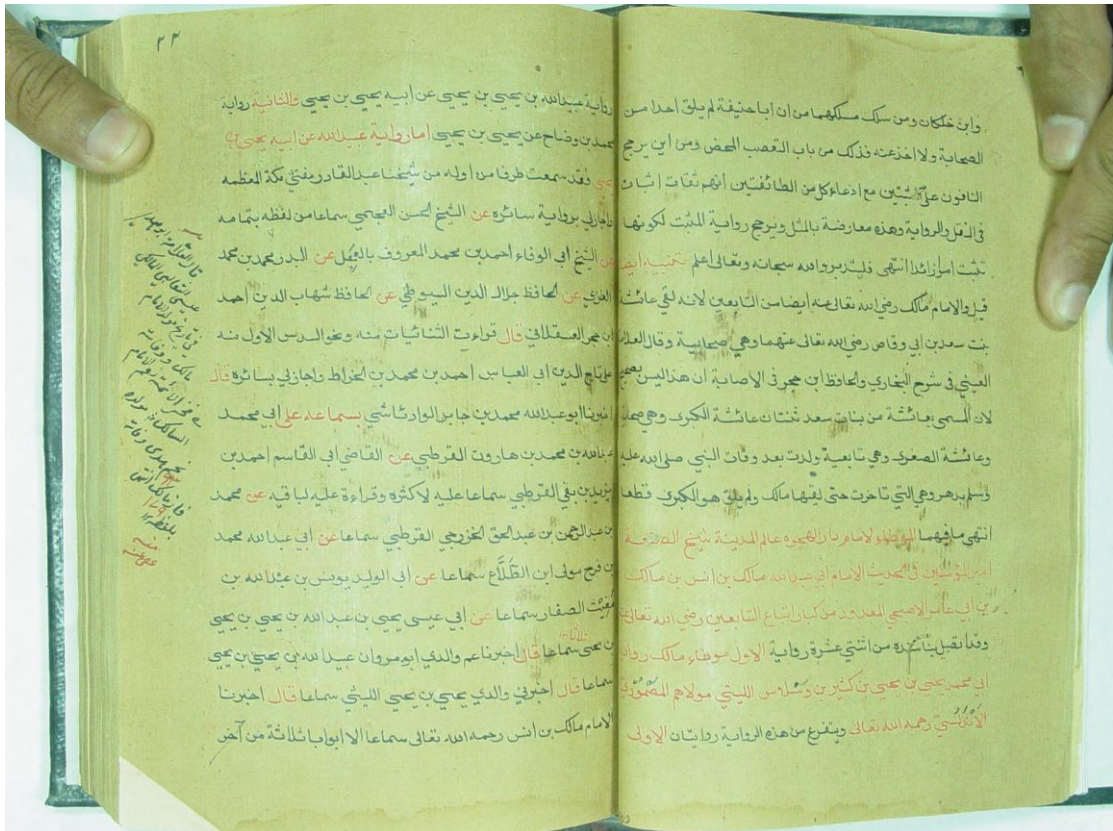 وابن خلكان ومن سلك مسلكهما من ان ابا حنيفة لم يلق احدا من
الصحابة ولا اخذ عنه فذلك من باب التعصب المحض ومن اين يرجح
النافون على المثبتين مع ادعاء كل من الطائفتين انهم ثقات اثبات
فى النقل والرواية وهذه معارضة بالمثل ويرجح رواية المثبت لكونها
تثبت امرا زائدا انتهى فليتدبر والله سبحانه وتعالى اعلم تتمة
قيل والامام مالك رضي الله تعالى عنه ايضا من التابعين لانه لقي عائشة
بنت سعد بن ابي وقاص رضي الله تعالى عنهما وهي صحابية وقال العلامة
العيني في شرح البخاري والحافظ ابن حجر فى الاصابة ان هذا ليس بصحيح
لان المسمى بعائشة من بنات سعد ثنتان عائشة الكبرى وهي صحابية
وعائشة الصغرى وهي تابعية ولدت بعد وفات النبي صلى الله عليه
وسلم بدهر وهي التي تاخرت حتى لقيها مالك ولم يلق هو الكبرى قطعا
انتهى ما فيهما الموطاء لامام دار الهجرة عالم المدينة شيخ
امير المؤمنين فى الحديث الامام ابي عبد الله مالك بن انس بن مالك
بن ابي عامر الاصبحي المعدود من كبار اتباع التابعين رضي الله تعالى
وقد من اثنتي عشرة رواية الاول موطاء مالك رواية
ابي محمد يحيى بن يحيى بن كثير بن وسلاس الليثي مولاهم المصمودي
الاندلسي رحمه الله تعالى ويتفرع من هذه الرواية روايتان الاولى
٢٢
رواية عبيد الله بن يحيى بن يحيى عن ابيه يحيى بن يحيى والثانية رواية
محمد بن وضاح عن يحيى بن يحيى اما رواية عبيد الله عن ابيه يحيى بن
يحيى فقد سمعت طرفا من اوله من شيخنا عبد القادر مفتي مكة المعظمه
واجازني برواية سائره عن الشيخ الحسن العجيمي سماعا من لفظه بتمامه
عن الشيخ ابي الوفاء احمد بن محمد المعروف بالعجل عن البدر محمد بن محمد
الغزي عن الحافظ جلال الدين السيوطي عن الحافظ شهاب الدين احمد
ابن حجر العسقلاني قال قراءت الثنائيات منه ونحو السدس الاول منه
على تاج الدين ابي العباس احمد بن محمد بن الخراط واجازني بسائره قال
اخبرنا ابو عبد الله محمد بن جابر الوادئاشي بسماعه على ابي محمد
عبد الله بن محمد بن هارون القرطبي عن القاضي ابي القاسم احمد بن
يزيد بن بقي القرطبي سماعا عليه لاكثره وقراءة عليه لباقيه عن محمد
بن عبد الرحمن بن عبد الحق الخزرجي القرطبي سماعا عن ابي عبد الله محمد
بن فرج مولى ابن الطلاع سماعا عن ابي الوليد يونس بن عبد الله بن
مغيث الصفار سماعا عن ابي عيسى يحيى بن عبد الله بن يحيى بن يحيى
بن يحيى سماعا قال اخبرنا عم والدي ابو مروان عبيد الله بن يحيى بن يحيى
سماعا قال اخبرني والدي يحيى بن يحيى الليثي سماعا قال اخبرنا
الامام مالك بن انس رحمه الله تعالى سماعا الا ابوابا ثلاثة من آخر
قال العلامة ابو مهدي
عيسى الثعالبي المالكي
في تاريخ مولد الامام
مالك ووفاته
فخر الائمة نعم الامام
السالك مولده
نجم هدى وفاته
فاز مالك انتهى
بلفظه